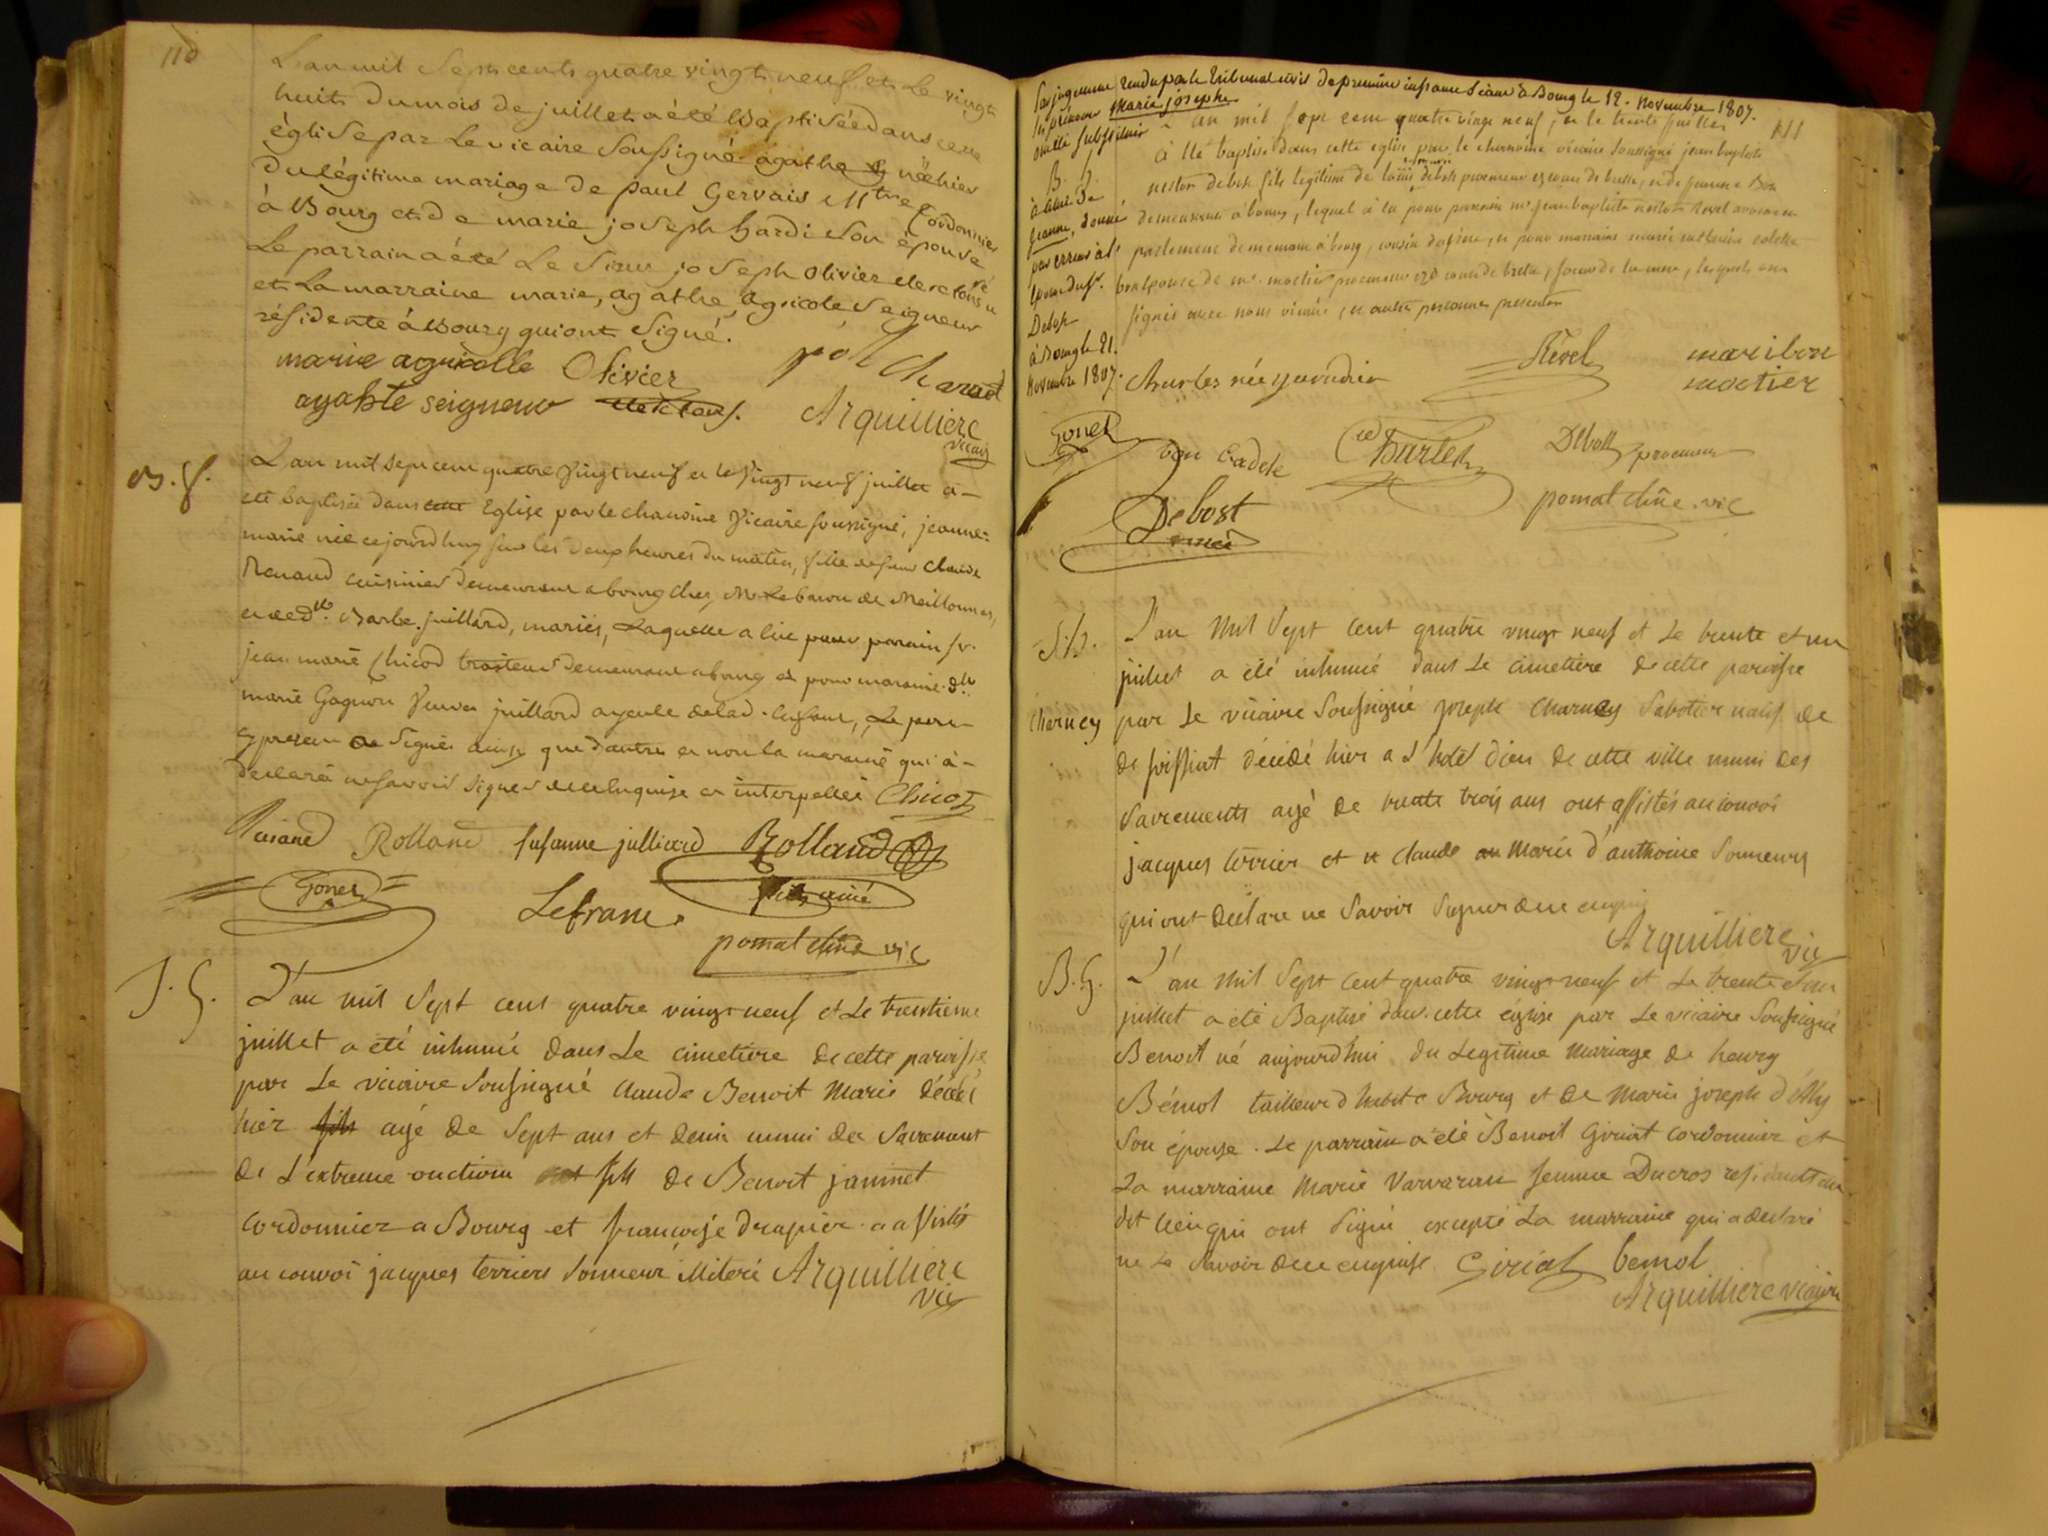 110
L'an mil Sept cents quatre vingt neuf et Le vingt
huit du mois de juillet a été Baptisée dans cette
église par Le vicaire Soussigné agathe née hier
du légitime mariage de paul Gervais Mtre Cordonnier
à Bourg et de marie joseph hardi Son épouse
Le parrain a été Le Sieur joseph olivier
et La marraine marie, agathe, agricole Seigneur
résidente à Bourg qui ont Signé.
marie agricolle Olivier
agahte seigneur
Arquilliere
vicair
B. f.
L'an mil sept cent quatre vingt neuf et le vingt neuf juillet a
été baptisée dans cette Eglise par le chanoine Vicaire soussigné, jeanne-
marie née cejourdhuy sur les deux heures du matin, fille de sieur Claude
Renaud cuisinier demeurant a bourg chez Mr Le baron de Meillonnas,
et de dlle Barbe juillard, mariés, Laquelle a eue pour parain sr.
jean marie Chicod demeurant a bourg et pour maraine dlle
marie Gagnion Veuve juillard ayeule de lad. enfant, Le pere
présent Signés ainsy que d'autres et non la maraine qui a
déclaré ne savoir signer de ce enquise et interpellée Chicod
Renaud Rolland susanne julliard Rolland
Gonet Lefranc. fils ainé
pomat chne vic
J. G.
L'an mil Sept cent quatre vingt neuf et Le trentieme
juillet a été inhumé dans Le cimetiere de cette paroisse
par Le vicaire Soussigné claude Benoit Marie décédé
hier fils agé de Sept ans et demi muni du Sacrement
de L'extreme onction fils de Benoit janinet
cordonnier a Bourg et francoise drapier. a assistés
au convoi jacques terrier Sonneur illiteré Arquilliere
vic
Par jugement rendu par le tribunal civil de premiere instance séant à Bourg le 12. Novembre 1807.
le prénom Marie josephe
a été substitué
à celui de
jeanne, donné
par erreur à l'
épouse du Sr.
Debost
à Bourg le 21.
Novembre 1807.
Gonet
B. G.
111
L'an mil sept cent quatre vingt neuf, et le trente juillet
à été baptisé dans cette eglise par le chanoine vicaire soussigné jean baptiste
nestor debost fils legitime de Louis debost procureur ez cours de bresse, et de jeanne Bon
demeurant à bourg, lequel à eu pour parrain mr jean baptiste nestor Revel avocat en
parlement demeurant à bourg, cousin du pere, et pour marraine marie
bon épouse de mr. mortier procureur ezd cours de bresse, soeur de la mere, lesquels ont
signés avec nous vicaire, et autres personnes presentes
Revel mari bon
mortier
Charles née
bon cadete Charles Debost procureur
pomat chne. vic
Debost
ainé
S. B.
Charney
L'an Mil Sept cent quatre vingt neuf et Le trente et un
juillet a été inhumé dans Le cimetiere de cette paroisse
par Le vicaire Soussigné joseph Charney Sabotier natif de
de foissiat décédé hier a L'hotel dieu de cette ville muni des
Sacrements agé de trente trois ans ont assistés au convoi
jacques terrier et claude Marie d'anthoine Sonneurs
qui ont déclaré ne Savoir Signer de ce enquis
Arquilliere
vic
B. G.
L'an Mil Sept Cent quatre vingt neuf et Le trente et un
juillet a été Baptisé dans cette église par Le vicaire Soussigné
Benoit né aujourdhui du Legitime Mariage de henry
Bémol tailleur d'habit a Bourg et de Marie joseph
Son épouse. Le parrain a été Benoit Giriat cordonnier et
La marraine Marie Varvaran femme Ducros residants au
dit lieu qui ont Signé excepté La marraine qui a declaré
ne Le Savoir de ce enquise Giriat bemol
Arquilliere vicaire